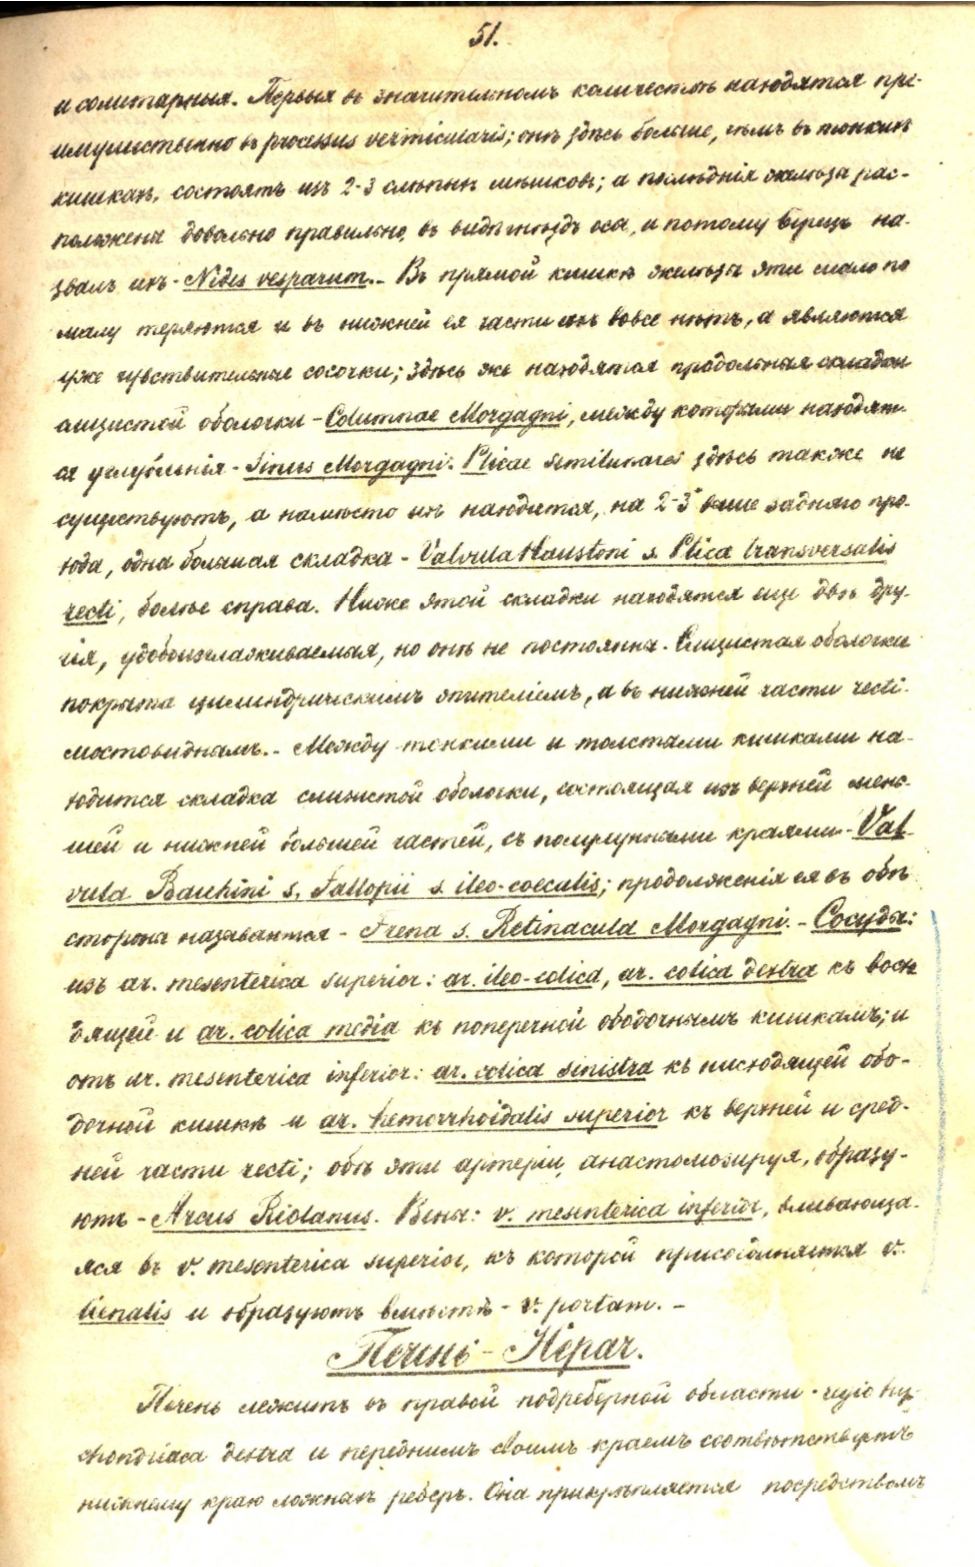 51.
и солитарныя. Первыя въ значительномъ количествѣ находятся пре-
имущественно въ processus vermicularis; онѣ здѣсь больше, чѣмъ въ тонкихъ
кишкахъ, состоятъ изъ 2-3 слѣпыхъ мѣшковъ; а послѣднія железы рас-
положены довольно правильно, въ видѣ гнѣздъ осы, и потому Бурецъ на-
звалъ ихъ - Nides vesparum. - Въ прямой кишкѣ железы эти мало по
малу теряются и въ нижней ея части ихъ вовсе нѣтъ, а являются
уже чувствительные сосочки; здѣсь же находятся продольныя складки
слизистой оболочки - Columnae Morgagni, между которыми находят-
ся углубленія - Sinus Morgagni. Plicae semilunares здѣсь также не
существуютъ, а намѣсто ихъ находится, на 2-3" выше задняго про-
хода, одна большая складка - Valvula Haustoni s. Plica transversalis
recti, болѣе справа. Ниже этой складки находятся еще двѣ дру-
гія, удобоизглаживаемыя, но онѣ не постоянны. Слизистая оболочка
покрыта цилиндрическимъ эпителіемъ, а въ нижней части recti -
мостовиднымъ. - Между тонкими и толстыми кишками на-
ходится складка слизистой оболочки, состоящая изъ верхней мень-
шей и нижней большей частей, съ полулунными краями - Val-
vula Bauhini s. Fallopii s. ileo-coecalis; продолженія ея въ обѣ
стороны называются - Frena s. Retinacula Morgagni. - Сосуды:
изъ ar. mesenterica superior: ar. ileo-colica, ar. colica dextra къ восхо-
дящей и ar. colica media къ поперечной ободочнымъ кишкамъ; и
отъ ar. mesenterica inferior: ar. colica sinistra къ нисходящей обо-
дочной кишкѣ и ar. hemorrhoidalis superior къ верхней и сред-
ней части recti; обѣ эти артеріи, анастомозируя, образу-
ютъ - Arcus Riolanus. Вены: v. mesenterica inferior, вливающа-
яся въ v. mesenterica superior, къ которой присоединяется v.
lienalis и образуютъ вмѣстѣ - v. portam. -
Печень - Hepar.
Печень лежитъ въ правой подреберной области - regio hyp-
chondriaca dextra и переднимъ своимъ краемъ соотвѣтствуетъ
нижнему краю ложныхъ реберъ. Она прикрѣпляется посредствомъ